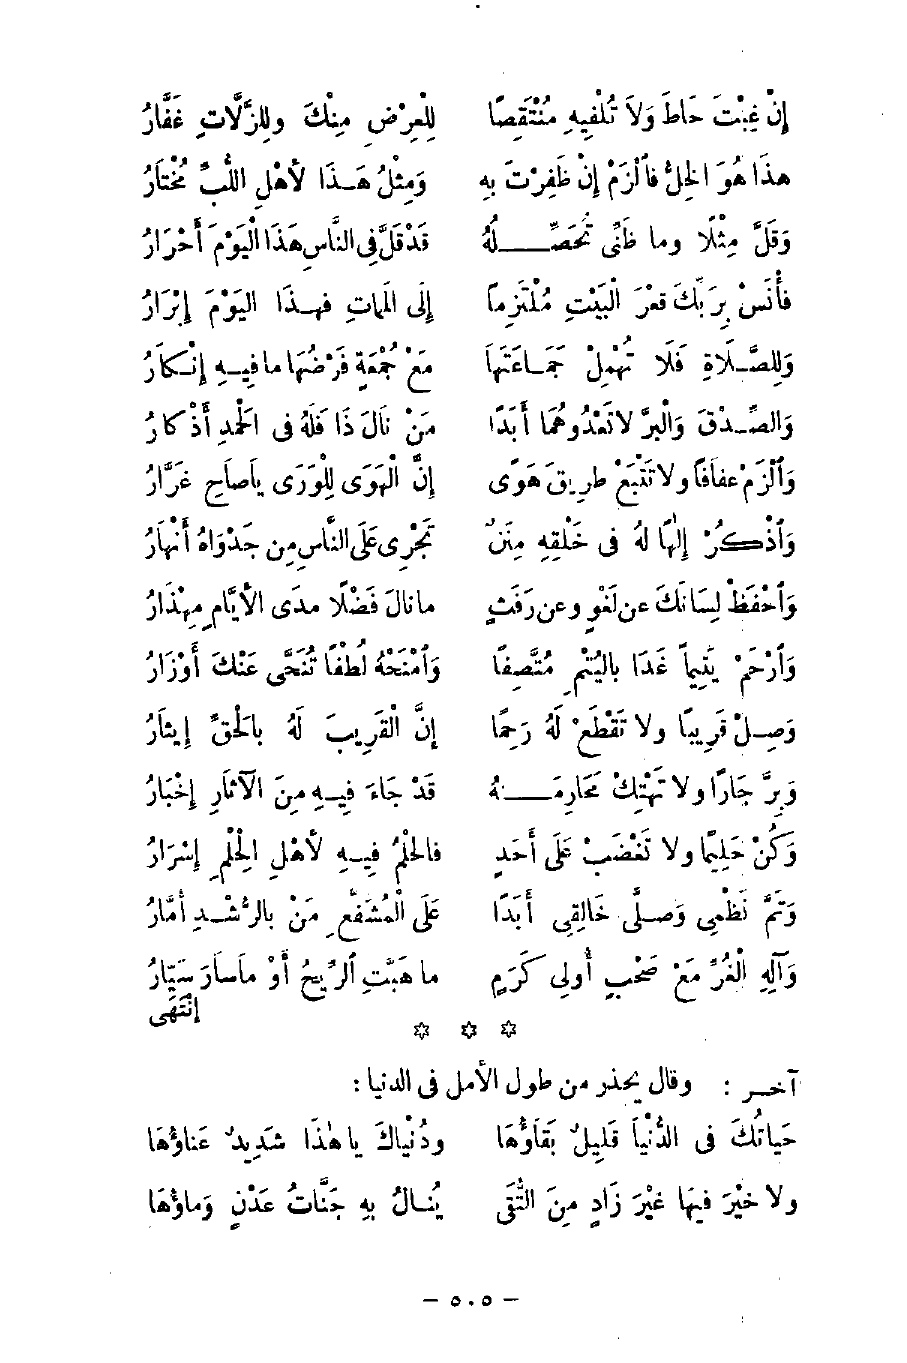 إِنْ غِبْتَ حَاطَ وَلَا تُلْفِيهِ مُنْتَقِصًا لِلْعِرْضِ مِنْكَ وللزَّلَّاتِ غَفَّارُ
هذَا هُوَ الخِلُّ فَالْزَمْ إِنْ ظَفِرْتَ بِهِ وَمِثْلُ هَذَا لأهْلِ اللُّبِّ مُخْتَارُ
وَقَلَّ مِثْلًا وما ظَنِّى تُحَصِّلُهُ قَدْ قَلَّ فى النَّاسِ هَذَا الْيَوْمَ أَحْرَارُ
فَأْنَسْ بِرَبِّكَ قعْرَ الْبَيْتِ مُلْتَزِمًا إِلَى المَمَاتِ فهذَا اليَوْمَ إِبْرَارُ
وَلِلصَّلَاةِ فَلَا تُهْمِلْ جَمَاعَتَهَا مَعْ جُمْعَةٍ فَرْضُهَا ما فِيهِ إِنْكَارُ
وَالصِّدْقَ وَالْبِرَّ لا تَعْدُوهُمَا أَبَدًا مَنْ نَالَ ذَا فَلَهُ فى الحَمْدِ أَذْكَارُ
وَالْزَمْ عفافًا ولا تَتْبَعْ طريقَ هَوًى إِنَّ الْهَوَى لِلْوَرَى يَاصَاحِ غَرَّارُ
وَاذْكُرْ إِلهًا لَهُ فى خَلْقِهِ مِنَنٌ تَجْرِى عَلَى النَّاسِ مِن جَدْوَاهُ أَنْهَارُ
وَاحْفَظْ لِسَانَكَ عن لَغْوٍ وعن رَفَثٍ ما نالَ فَضْلًا مدَى الأيَّامِ مِهْذَارُ
وَارْحَمْ يَتِيمًا غَدَا باليُتْمِ مُتَّصِفًا وَامْنَحْهُ لُطْفًا تُنَحَّى عَنْكَ أَوْزَارُ
وَصِلْ قَرِيبًا ولا تَقْطَعْ لَهُ رَحِمًا إِنَّ الْقَرِيبَ لَهُ بالحَقِّ إِيثَارُ
وَبِرَّ جَارًا ولا تَهْتِكْ مَحَارِمَهُ قَدْ جَاءَ فِيهِ مِنَ الآثَارِ إِخْبَارُ
وَكُنْ حَلِيمًا ولا تَغْضَبْ عَلَى أَحَدٍ فالحِلْمُ فِيهِ لأَهْلِ الحِلْمِ إِسْرَارُ
وَتَمَّ نَظْمِى وَصلَّى خَالِقِى أَبَدًا عَلَى الْمُشَفَّعِ مَنْ بالرُّشْدِ أمَّارُ
وَآلِهِ الْغُرِّ مَعْ صَحْبٍ أُولِى كَرَمٍ ما هَبَّتِ الرِّيحُ أَوْ ماسَارَ سَيَّارُ
إِنْتَهَى
✡ ✡ ✡
آخر : وقال يحذر من طول الأمل فى الدنيا :
حَيَاتُكَ فى الدُّنْيَا قَلِيلٌ بَقَاؤُهَا ودُنْيَاكَ يا هٰذَا شَدِيدٌ عَناؤُهَا
ولا خَيْرَ فيهَا غَيْرَ زَادٍ مِنَ التُّقَى يُنالُ بِهِ جَنَّاتُ عَدْنٍ وَماؤُهَا
— ٥٠٥ —